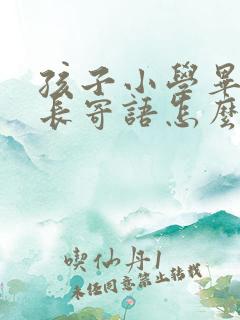 孩子小學畢
長寄語怎麼
喫仙丹1
未经同意禁止转载